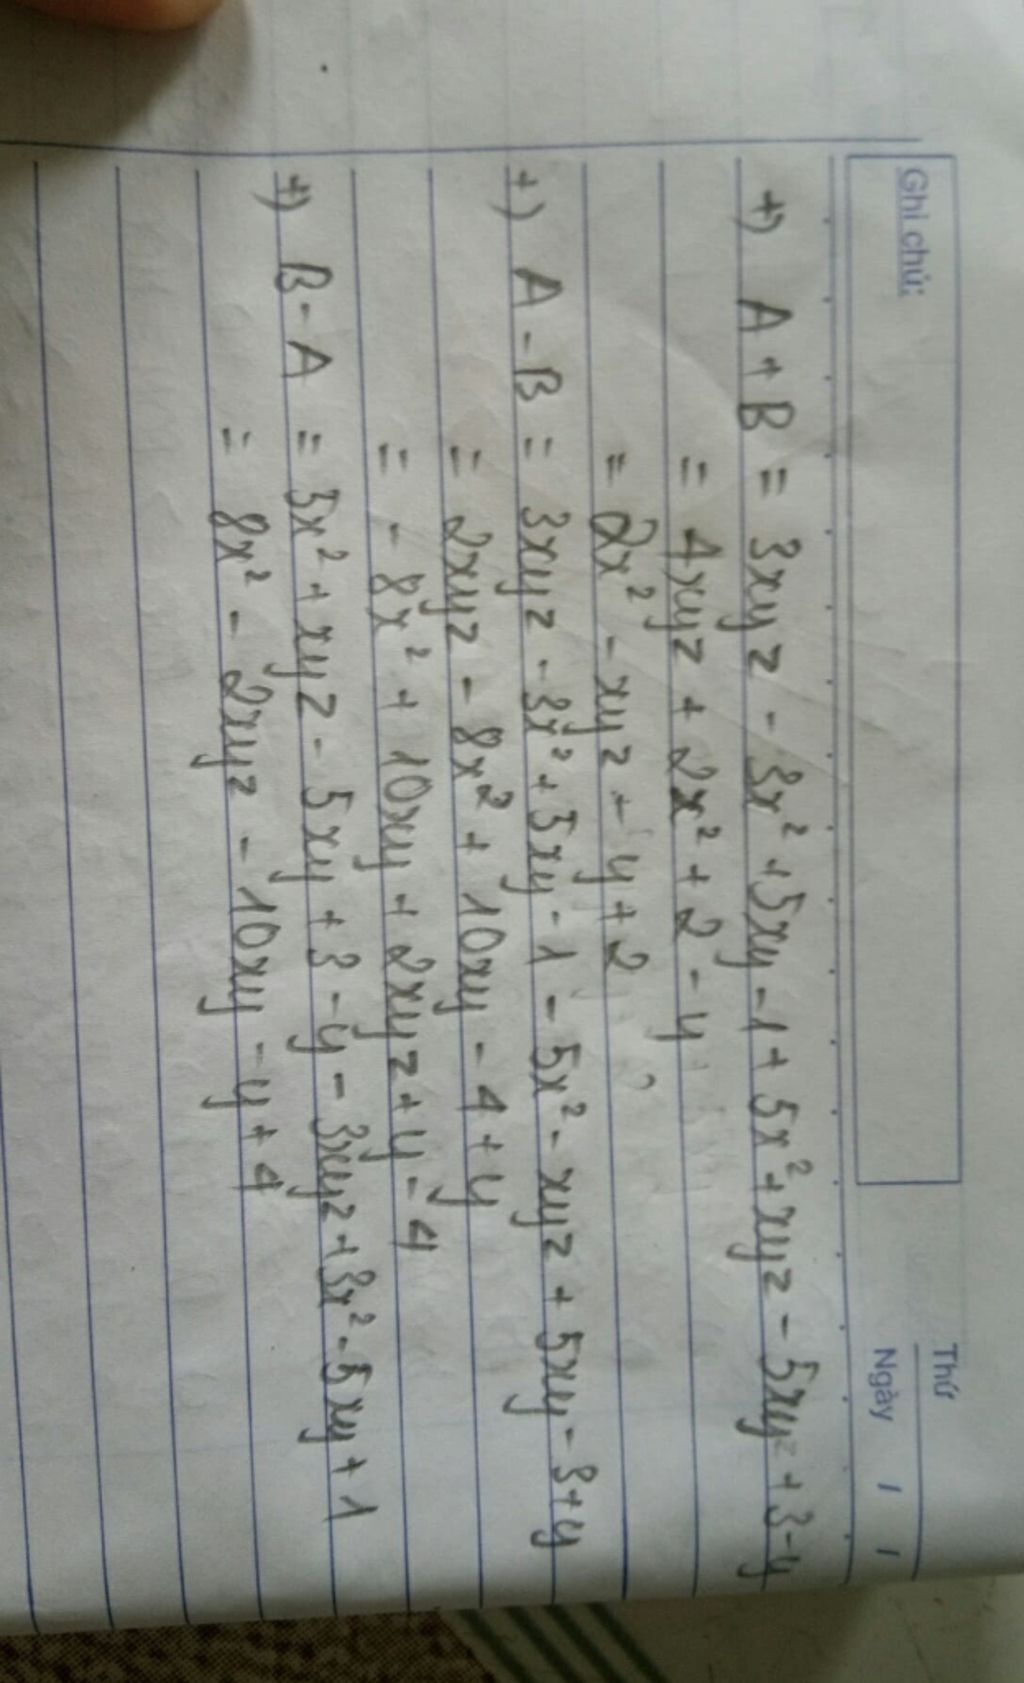 Ghi chú:
Thứ
Ngày / /
+) A + B = 3xyz - 3x² + 5xy - 1 + 5x² + xyz - 5xy + 3 - y
= 4xyz + 2x² + 2 - y
= 2x² - xyz + y + 2
+) A - B = 3xyz - 3x² + 5xy - 1 - 5x² - xyz + 5xy - 3 + y
= 2xyz - 8x² + 10xy - 4 + y
= - 8x² + 10xy + 2xyz + y - 4
+) B - A = 5x² + xyz - 5xy + 3 - y - 3xyz + 3x² - 5xy + 1
= 8x² - 2xyz - 10xy - y + 4